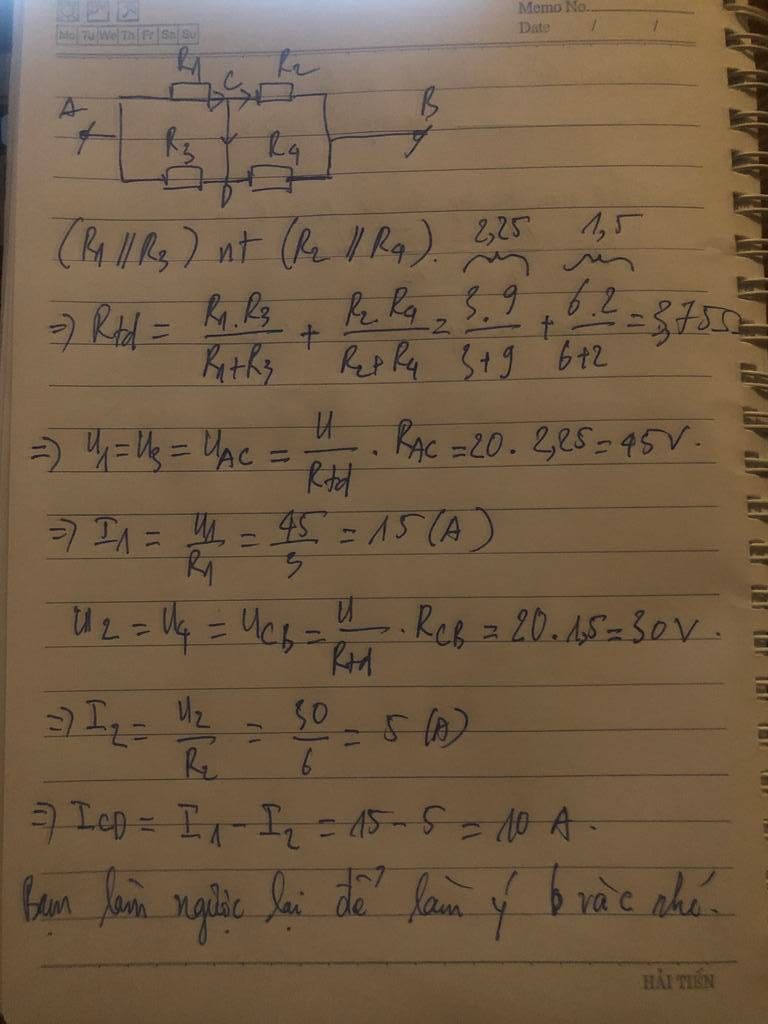 Memo No.
Date / /
Mo Tu We Th Fr Sa Su
R1 C R2
A B
R3 R4
D
(R1 // R3) nt (R2 // R4). 2,25 1,5
=> Rtd = R1.R3/R1+R3 + R2.R4/R2+R4 = 3.9/3+9 + 6.2/6+2 = 3,75Ω
=> U1 = U3 = UAC = U/Rtd . RAC = 20 . 2,25 = 45V.
=> I1 = U1/R1 = 45/3 = 15 (A)
U2 = U4 = UCB = U/Rtd . RCB = 20 . 1,5 = 30V.
=> I2 = U2/R2 = 30/6 = 5 (A)
=> ICD = I1 - I2 = 15 - 5 = 10 A.
Bạn làm ngược lại để làm ý b và c nhé.
HẢI TIẾN